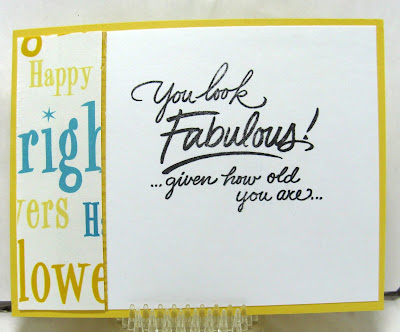 Happy
righ
vers Ha
lowe
You look
Fabulous!
...given how old
you are...